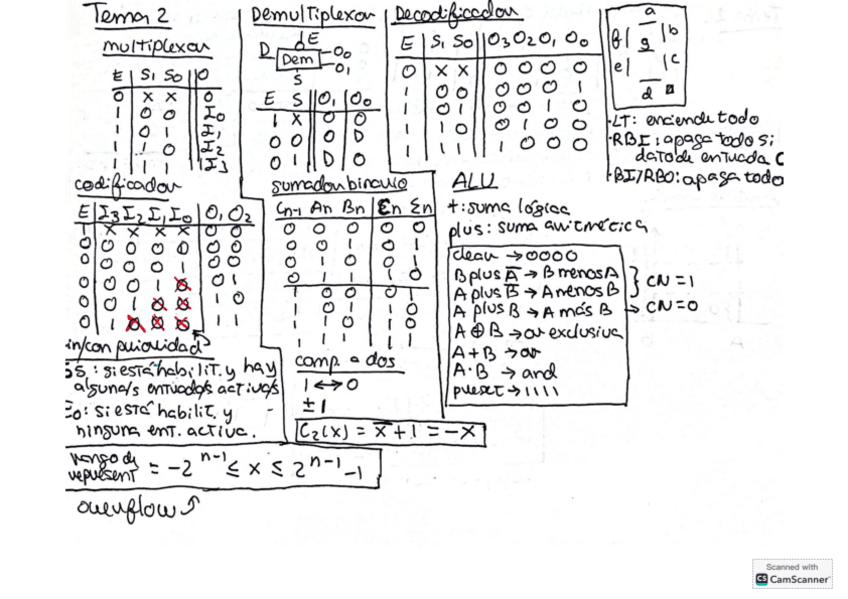 Tema 2
multiplexor
E S1 S0 O
0 x x 0
1 0 0 I0
1 0 1 I1
1 1 0 I2
1 1 1 I3
Demultiplexor
E
D Dem O0
O1
S
E S O1 O0
1 X 0 0
0 0 0 D
0 1 D 0
Decodificador
E S1 S0 O3 O2 O1 O0
0 x x 0 0 0 0
1 0 0 0 0 0 1
1 0 1 0 0 1 0
1 1 0 0 1 0 0
1 1 1 1 0 0 0
a
f g b
e c
d
·LT: enciende todo
·RBI: apaga todo si
dato de entrada 0
·BI/RBO: apaga todo
codificador
E I3 I2 I1 I0 O1 O2
1 x x x x 0 0
0 0 0 0 0 0 0
0 0 0 0 1 0 0
0 0 0 1 0 0 1
0 0 1 0 0 1 0
0 1 0 0 0 1 1
sin/con prioridad
GS: si está habilit. y hay
alguna/s entrada/s activa/s
Eo: si está habilit. y
ninguna ent. activa.
sumador binario
Cn-1 An Bn Cn Σn
0 0 0 0 0
0 0 1 0 1
0 1 0 0 1
0 1 1 1 0
1 0 0 0 1
1 0 1 1 0
1 1 0 1 0
1 1 1 1 1
comp. a dos
1 ↔ 0
± 1
C2(x) = x̅ + 1 = -x
ALU
+: suma lógica
plus: suma aritmética
clear → 0000
B plus A̅ → B menos A
A plus B̅ → A menos B
} CN = 1
A plus B → A más B → CN = 0
A ⊕ B → or exclusiva
A + B → or
A · B → and
preset → 1111
rango de
represent = -2^n-1 ≤ x ≤ 2^n-1 -1
overflow
Scanned with
CS CamScanner